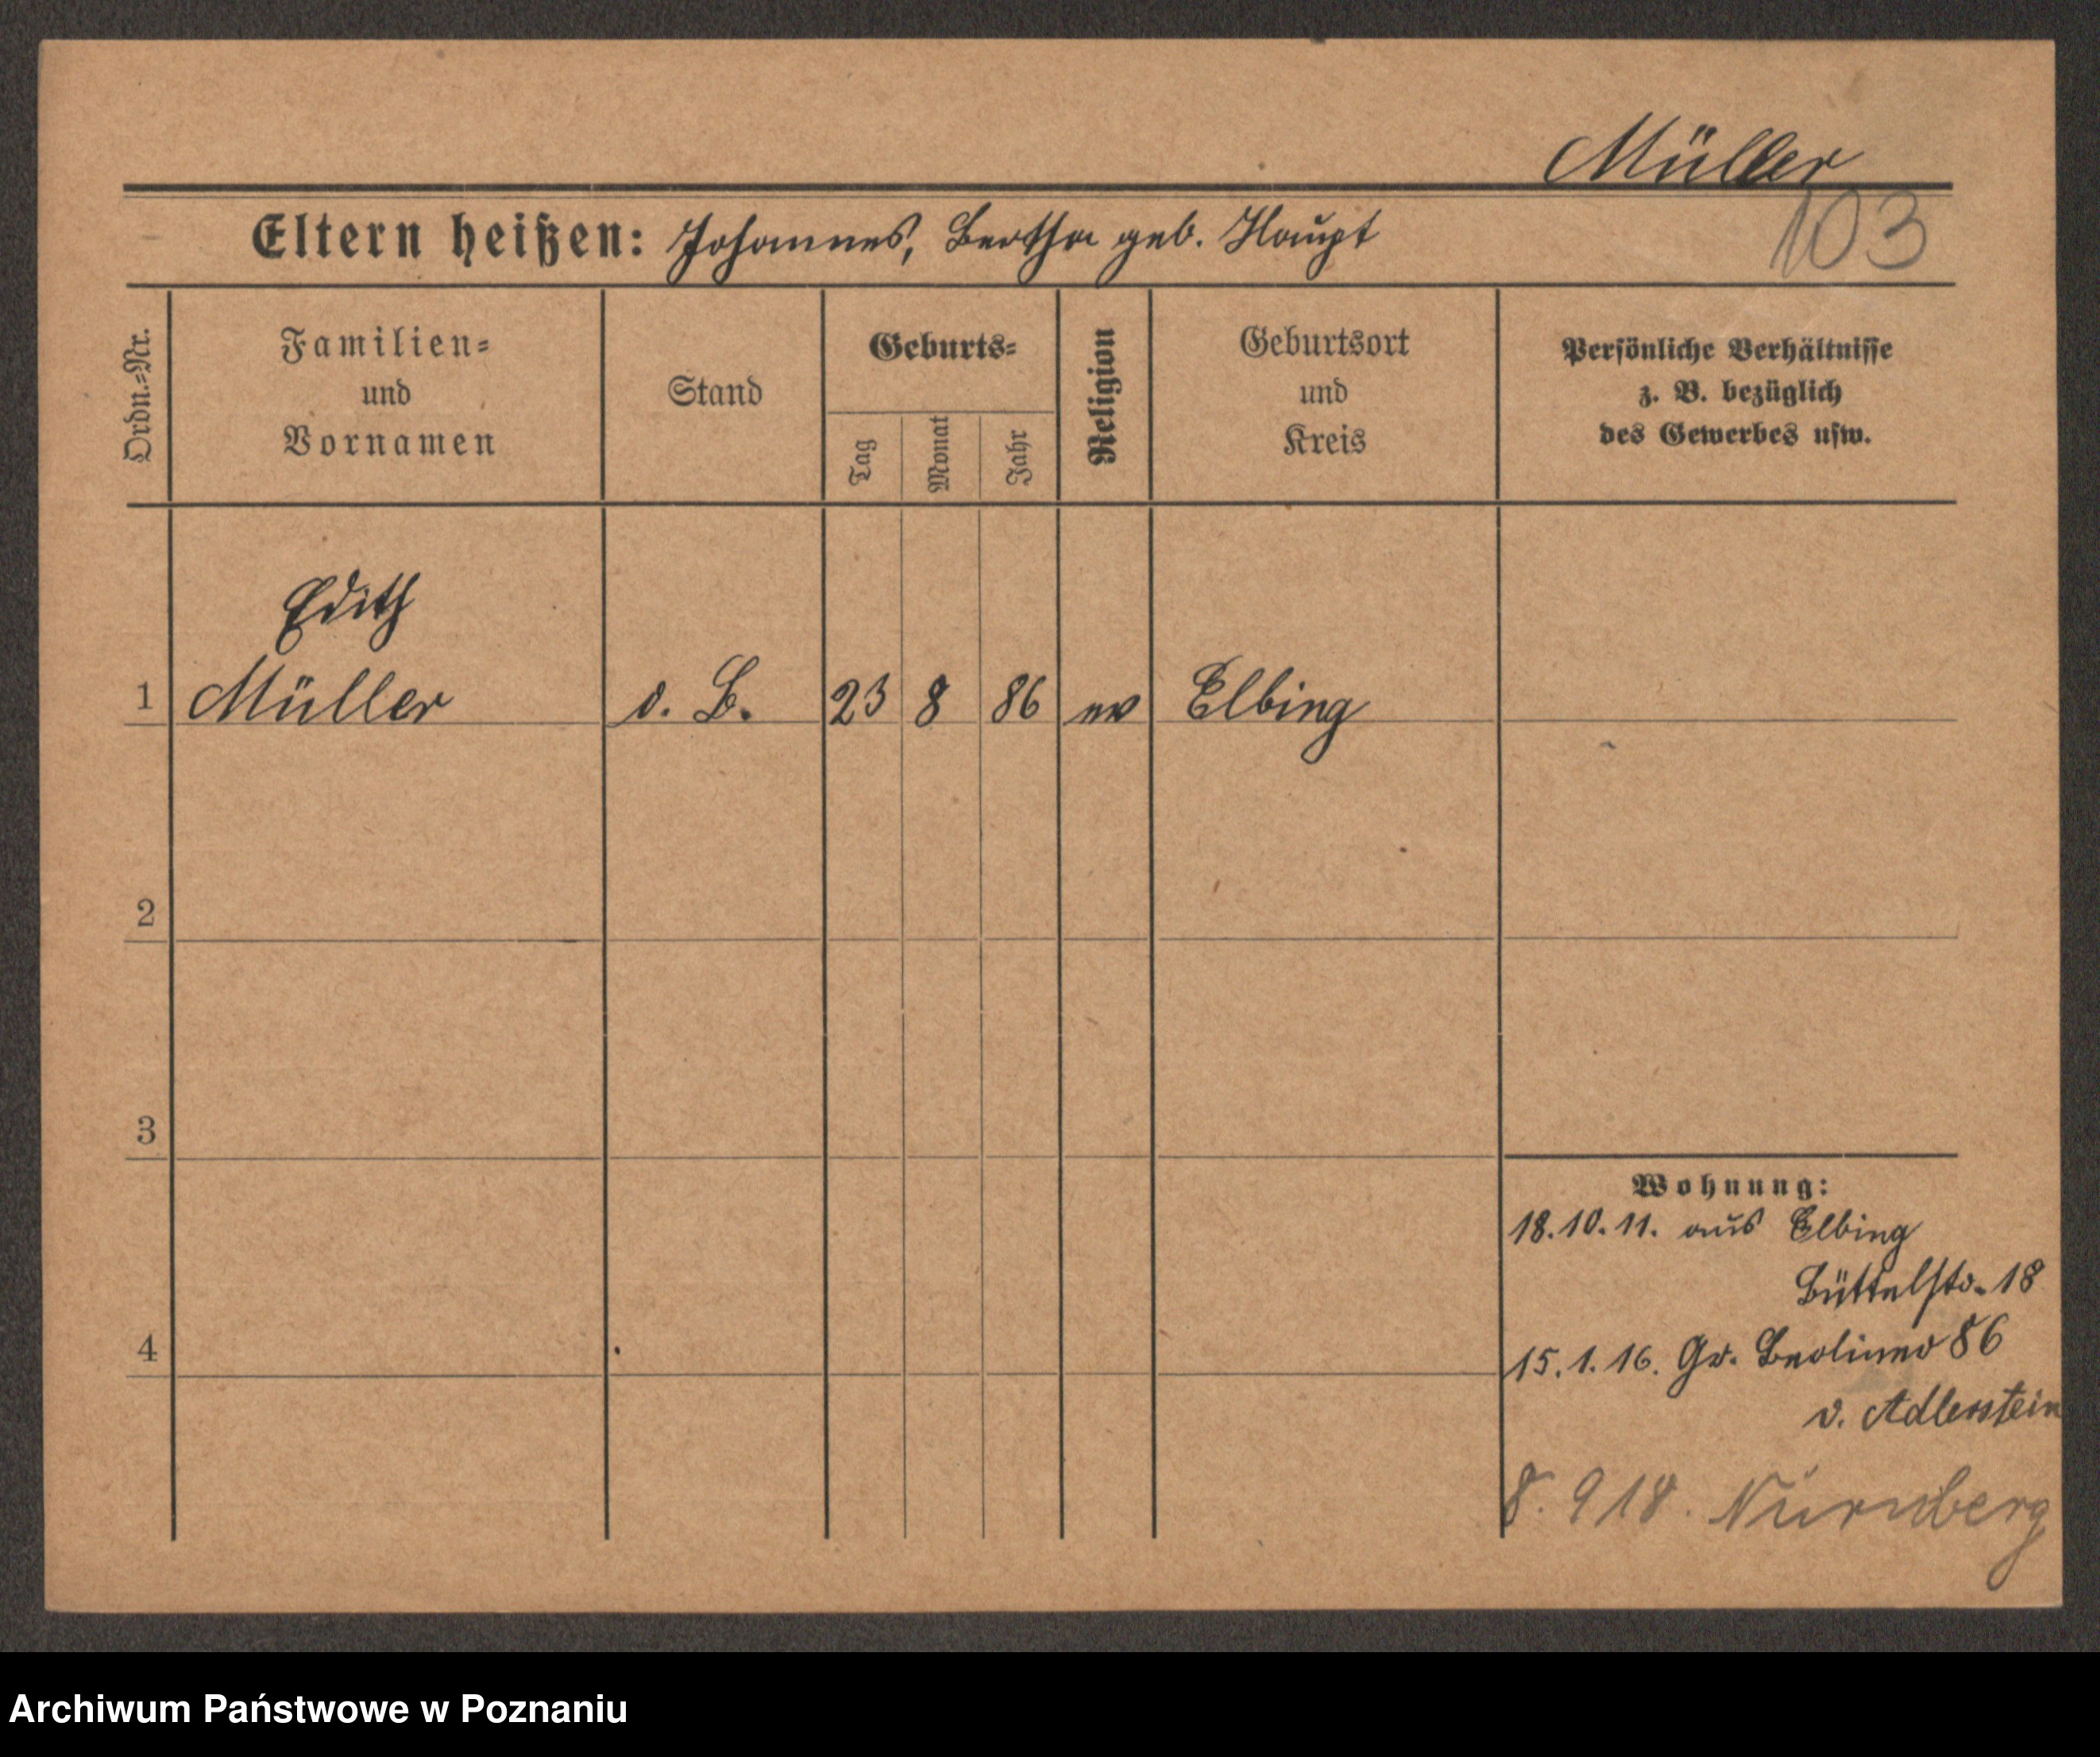 Müller
103
Eltern heißen: Johannes, Bertha geb. Haupt
Ordn.-Nr.
Familien-
und
Vornamen
Stand
Geburts-
Tag
Monat
Jahr
Religion
Geburtsort
und
Kreis
Persönliche Verhältnisse
z. B. bezüglich
des Gewerbes usw.
Edith
1 Müller o. B. 23 8 86 ev Elbing
2
3
Wohnung:
18.10.11. aus Elbing
Büttelstr. 18
4
15.1.16. Gr. Berliner 86
v. Adlerstein
8. 9 18. Nürnberg
Archiwum Państwowe w Poznaniu